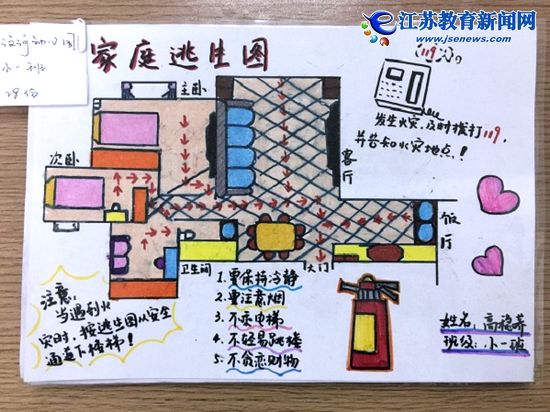 江苏教育新闻网
www.jsenews.com
小一班
28份
家庭逃生图
119
发生火灾,及时拨打119,
并告知火灾地点!
主卧
次卧
客厅
饭厅
卫生间
大门
注意:
当遇到火
灾时,按逃生图从安全
通道下楼梯!
1.要保持冷静
2.要注意烟
3.不乘电梯
4.不轻易跳楼
5.不贪恋财物
姓名:高
班级:小一班